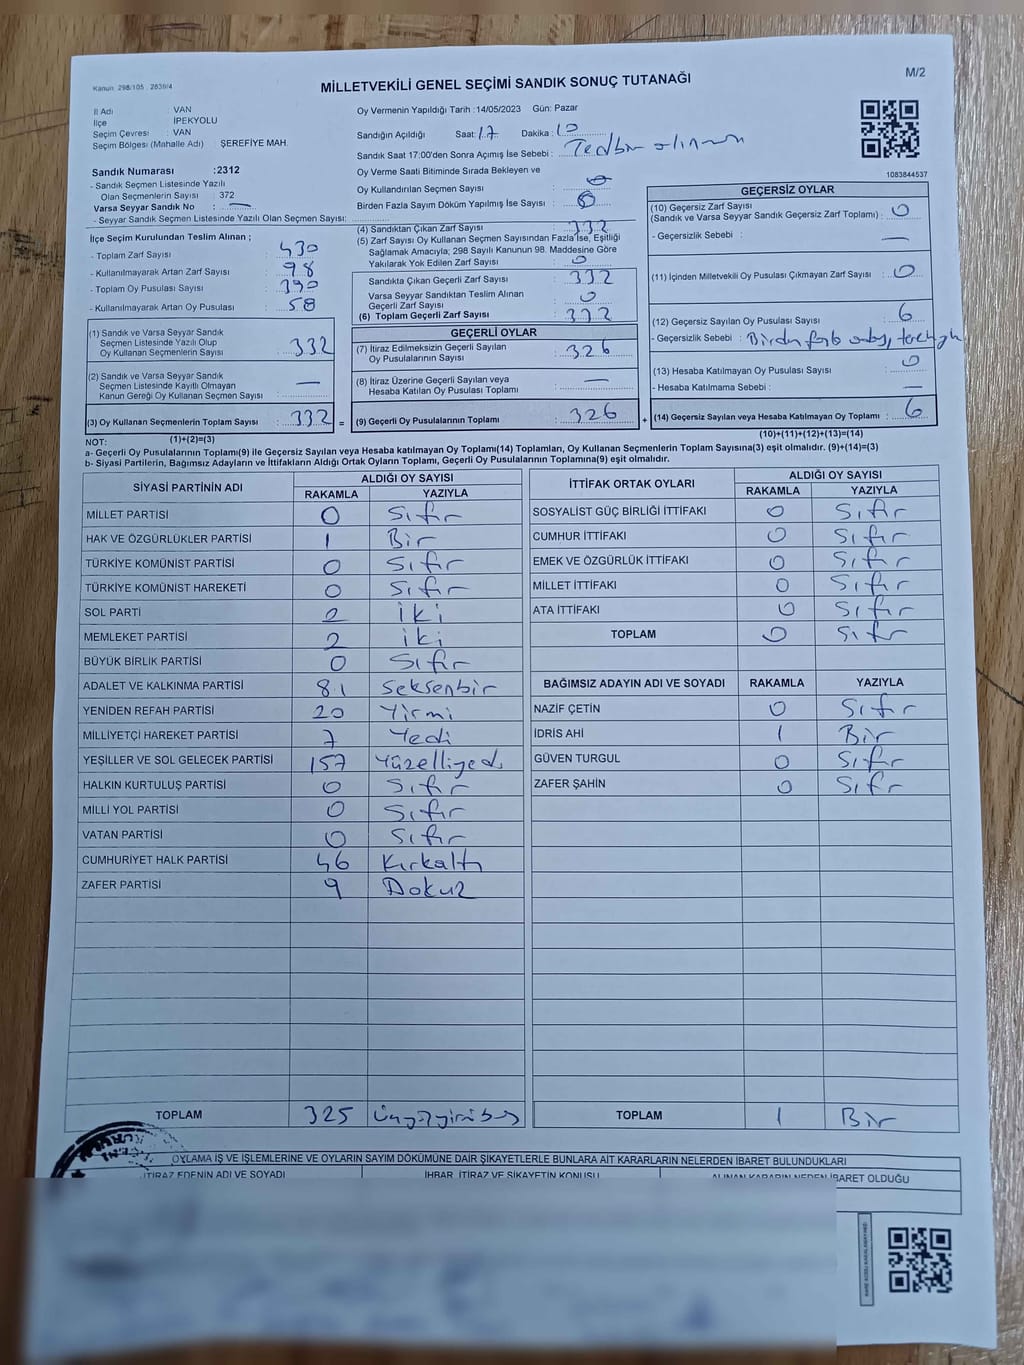 Kanun 298/105 2839/4
MİLLETVEKİLİ GENEL SEÇİMİ SANDIK SONUÇ TUTANAĞI
M/2
İl Adı : VAN
İlçe : İPEKYOLU
Seçim Çevresi : VAN
Seçim Bölgesi (Mahalle Adı) : ŞEREFİYE MAH.
Sandık Numarası :2312
- Sandık Seçmen Listesinde Yazılı
Olan Seçmenlerin Sayısı : 372
Varsa Seyyar Sandık No : —
- Seyyar Sandık Seçmen Listesinde Yazılı Olan Seçmen Sayısı:
Oy Vermenin Yapıldığı Tarih :14/05/2023 Gün: Pazar
Sandığın Açıldığı Saat: 17 Dakika: 10
Sandık Saat 17:00'den Sonra Açımış İse Sebebi :
Oy Verme Saati Bitiminde Sırada Bekleyen ve
Oy Kullandırılan Seçmen Sayısı : 0
Birden Fazla Sayım Döküm Yapılmış İse Sayısı : 0
1083844537
İlçe Seçim Kurulundan Teslim Alınan ;
- Toplam Zarf Sayısı : 430
- Kullanılmayarak Artan Zarf Sayısı : 98
- Toplam Oy Pusulası Sayısı : 390
- Kullanılmayarak Artan Oy Pusulası : 58
(1) Sandık ve Varsa Seyyar Sandık
Seçmen Listesinde Yazılı Olup
Oy Kullanan Seçmenlerin Sayısı : 332
(2) Sandık ve Varsa Seyyar Sandık
Seçmen Listesinde Kayıtlı Olmayan
Kanun Gereği Oy Kullanan Seçmen Sayısı : —
(3) Oy Kullanan Seçmenlerin Toplam Sayısı : 332 =
(1)+(2)=(3)
(4) Sandıktan Çıkan Zarf Sayısı : 332
(5) Zarf Sayısı Oy Kullanan Seçmen Sayısından Fazla İse, Eşitliği
Sağlamak Amacıyla; 298 Sayılı Kanunun 98. Maddesine Göre
Yakılarak Yok Edilen Zarf Sayısı : 0
Sandıkta Çıkan Geçerli Zarf Sayısı : 332
Varsa Seyyar Sandıktan Teslim Alınan
Geçerli Zarf Sayısı : 0
(6) Toplam Geçerli Zarf Sayısı : 332
GEÇERLİ OYLAR
(7) İtiraz Edilmeksizin Geçerli Sayılan
Oy Pusulalarının Sayısı : 326
(8) İtiraz Üzerine Geçerli Sayılan veya
Hesaba Katılan Oy Pusulası Toplamı : —
(9) Geçerli Oy Pusulalarının Toplamı : 326 +
GEÇERSİZ OYLAR
(10) Geçersiz Zarf Sayısı
(Sandık ve Varsa Seyyar Sandık Geçersiz Zarf Toplamı) : 0
- Geçersizlik Sebebi : —
(11) İçinden Milletvekili Oy Pusulası Çıkmayan Zarf Sayısı : 0
(12) Geçersiz Sayılan Oy Pusulası Sayısı : 6
- Geçersizlik Sebebi : Birden fazla
(13) Hesaba Katılmayan Oy Pusulası Sayısı : 0
- Hesaba Katılmama Sebebi : —
(14) Geçersiz Sayılan veya Hesaba Katılmayan Oy Toplamı : 6
(10)+(11)+(12)+(13)=(14)
NOT:
a- Geçerli Oy Pusulalarının Toplamı(9) ile Geçersiz Sayılan veya Hesaba katılmayan Oy Toplamı(14) Toplamları, Oy Kullanan Seçmenlerin Toplam Sayısına(3) eşit olmalıdır. (9)+(14)=(3)
b- Siyasi Partilerin, Bağımsız Adayların ve İttifakların Aldığı Ortak Oyların Toplamı, Geçerli Oy Pusulalarının Toplamına(9) eşit olmalıdır.
SİYASİ PARTİNİN ADI ALDIĞI OY SAYISI
RAKAMLA YAZIYLA
MİLLET PARTİSİ 0 Sıfır
HAK VE ÖZGÜRLÜKLER PARTİSİ 1 Bir
TÜRKİYE KOMÜNİST PARTİSİ 0 Sıfır
TÜRKİYE KOMÜNİST HAREKETİ 0 Sıfır
SOL PARTİ 2 iki
MEMLEKET PARTİSİ 2 iki
BÜYÜK BİRLİK PARTİSİ 0 Sıfır
ADALET VE KALKINMA PARTİSİ 81 Seksenbir
YENİDEN REFAH PARTİSİ 20 Yirmi
MİLLİYETÇİ HAREKET PARTİSİ 7 Yedi
YEŞİLLER VE SOL GELECEK PARTİSİ 157 Yüzelliyedi
HALKIN KURTULUŞ PARTİSİ 0 Sıfır
MİLLİ YOL PARTİSİ 0 Sıfır
VATAN PARTİSİ 0 Sıfır
CUMHURİYET HALK PARTİSİ 46 Kırkaltı
ZAFER PARTİSİ 9 Dokuz
TOPLAM 325 Üçyüzyirmibeş
İTTİFAK ORTAK OYLARI ALDIĞI OY SAYISI
RAKAMLA YAZIYLA
SOSYALİST GÜÇ BİRLİĞİ İTTİFAKI 0 Sıfır
CUMHUR İTTİFAKI 0 Sıfır
EMEK VE ÖZGÜRLÜK İTTİFAKI 0 Sıfır
MİLLET İTTİFAKI 0 Sıfır
ATA İTTİFAKI 0 Sıfır
TOPLAM 0 Sıfır
BAĞIMSIZ ADAYIN ADI VE SOYADI RAKAMLA YAZIYLA
NAZİF ÇETİN 0 Sıfır
İDRİS AHİ 1 Bir
GÜVEN TURGUL 0 Sıfır
ZAFER ŞAHİN 0 Sıfır
TOPLAM 1 Bir
OYLAMA İŞ VE İŞLEMLERİNE VE OYLARIN SAYIM DÖKÜMÜNE DAİR ŞİKAYETLERLE BUNLARA AİT KARARLARIN NELERDEN İBARET BULUNDUKLARI
İTİRAZ EDENİN ADI VE SOYADI İHBAR, İTİRAZ VE ŞİKAYETİN KONUSU ALINAN KARARIN NEDEN İBARET OLDUĞU